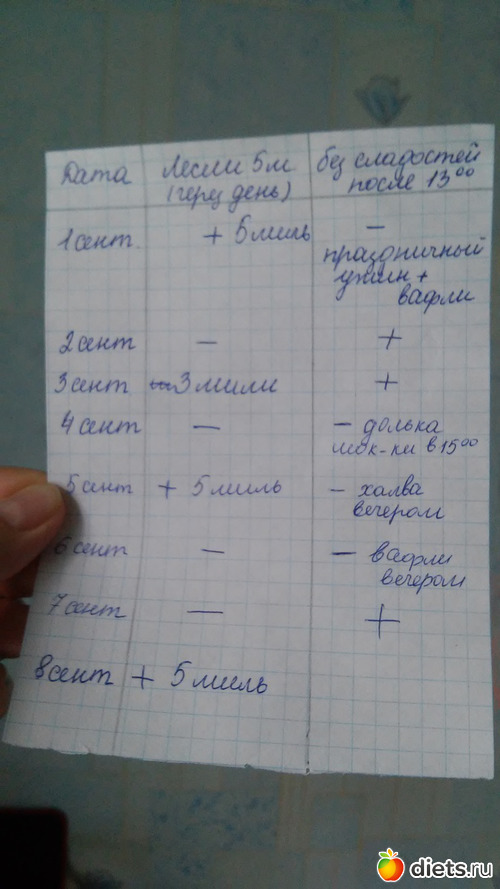 Дата Лесли 5м. без сладостей
(через день) после 13⁰⁰
1 сент. + 5 миль —
праздничный
ужин +
вафли
2 сент — +
3 сент 3 мили +
4 сент — — долька
шок-ки в 15⁰⁰
5 сент + 5 миль — халва
вечером
6 сент — — вафли
вечером
7 сент — +
8 сент + 5 миль
diets.ru